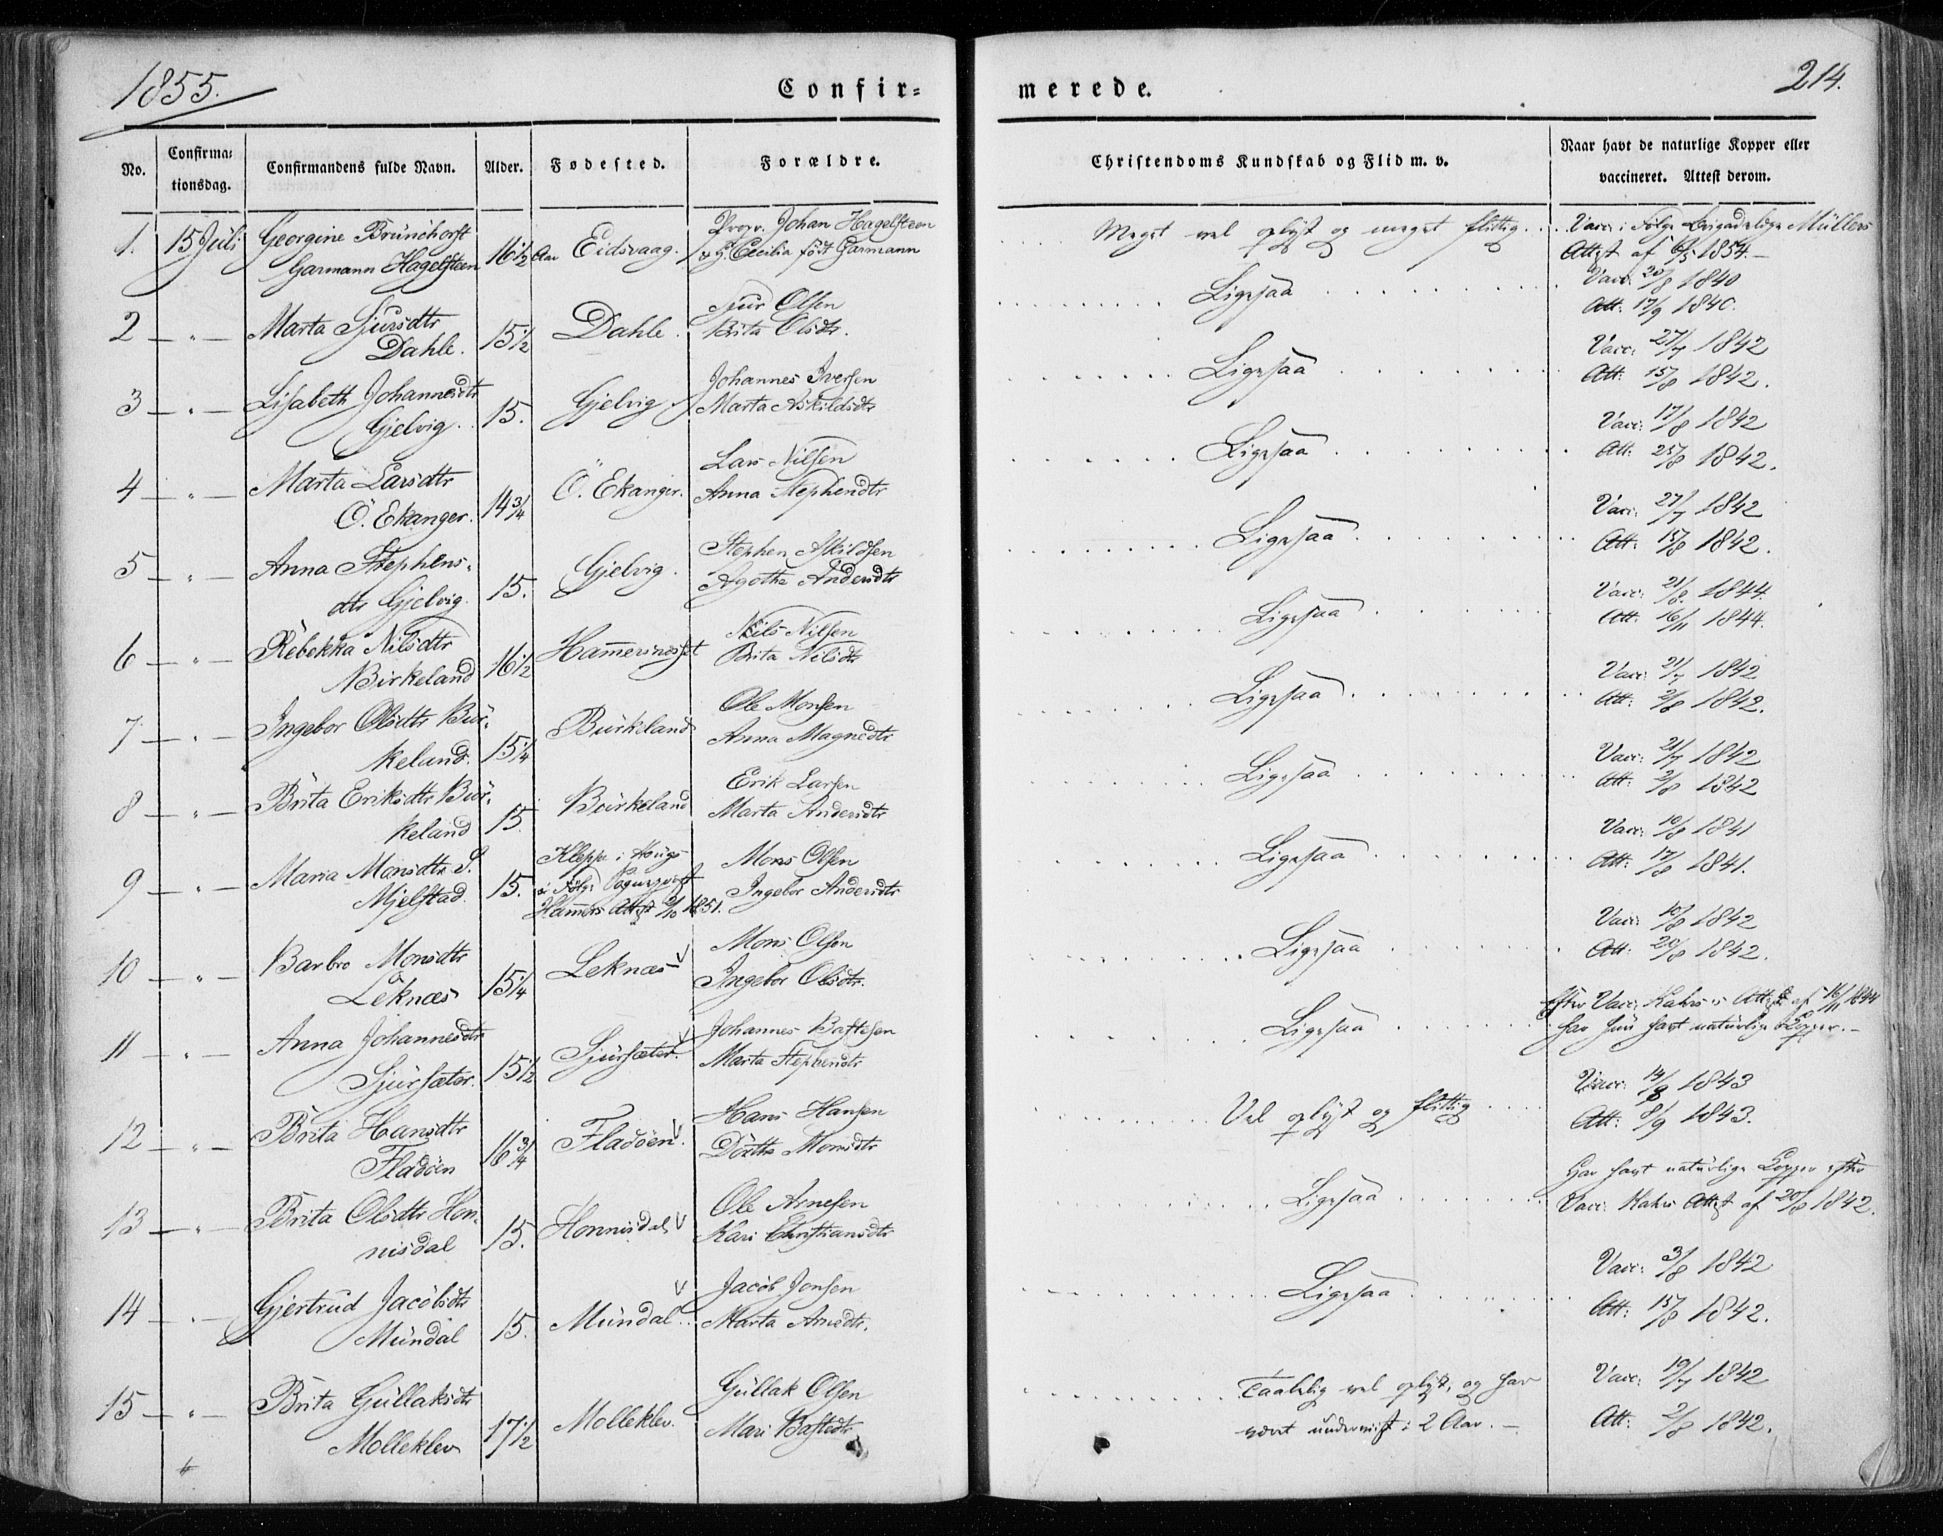 1855.
Confir=
merede.
214.
No.
Confirma=
tionsdag.
Confirmandens fulde Navn.
Alder.
Fødested.
Forældre.
Christendoms Kundskab og Flid m. v.
Naar havt de naturlige Kopper eller
vaccineret. Attest derom.
1. 15 Juli Georgine Brunchorst
Garmann Hagelsteen 16 1/2 Aar Eidsvaag.
Propr. Johan Hagelsteen
Cecilia født Garmann
Meget vel oplyst og meget flittig
Vacc: i Følge Brigadelæge Müllers
Attest af 6/5 1854.
2 — " — Marta Sjursdtr
Dahle. 15 1/2 Dahle.
Sjur Olsen
Brita Olsdtr.
Ligesaa
Vacc: 20/8 1840
Att: 17/9 1840.
3 — " — Lisabeth Johannesdtr
Gjelvig. 15. Gjelvig
Johannes Iversen
Marta Askildsdtr
Ligesaa
Vacc: 27/7 1842
Att: 15/8 1842.
4 — " — Marta Larsdtr
Ö. Ekanger. 14 3/4 Ö. Ekanger.
Lars Nilsen
Anna Stephensdtr
Ligesaa
Vacc: 17/8 1842
Att: 25/8 1842.
5 — " — Anna Stephens-
dtr Gjelvig. 15. Gjelvig.
Stephen Askildsen
Agatha Andersdtr
Ligesaa
Vacc: 27/7 1842
Att: 15/8 1842.
6 — " — Rebekka Nilsdtr
Birkeland 16 1/2
Nils Nilsen
Brita Nilsdtr
Ligesaa
Vacc: 21/8 1844.
Att: 16/11 1844.
7 — " — Ingebor Olsdtr Bir-
keland. 15 1/4 Birkeland
Ole Monsen
Anna Magnedtr
Ligesaa
Vacc: 21/7 1842
Att: 2/8 1842.
8 — " — Brita Eriksdtr Bir-
keland 15 Birkeland
Erik Larsen
Marta Andersdtr
Ligesaa
Vacc: 21/7 1842
Att: 2/8 1842
9 — " — Maria Monsdtr S.
Mjelstad. 15. Kleppe i Houg-
i Følge Sogneprest
Hammers Attest 1851.
Mons Olsen
Ingebor Andersdtr
Ligesaa
Vacc: 10/8 1841
Att: 17/8 1841.
10 — " — Barbro Monsdtr
Leknæs 15 1/4 Leknæs
Mons Olsen
Ingebor Olsdtr.
Ligesaa
Vacc: 10/8 1842
Att: 20/8 1842.
11 — " — Anna Johannesdtr
Sjursæter. 15 1/2 Sjursæter.
Johannes Bastesen
Marta Stephensdtr
Ligesaa
Efter Vacc: Kahrs's Attest af 16/11 1844
har hun havt naturlige Kopper.
12 — " — Brita Hansdtr
Fladöen 16 3/4 Fladöen.
Hans Hansen
Dorthe Monsdtr
Vel oplyst og flittig
Vacc: 14/8 1843
Att: 8/9 1843.
13 — " — Brita Olsdtr Hon-
nisdal 15. Honnisdal
Ole Arnesen
Kari Christiansdtr
Ligesaa
Har havt naturlige Kopper efter
Vacc: Kahrs Attest af 20/8 1842.
14 — " — Gjertrud Jacobsdtr
Mundal 15. Mundal.
Jacob Jonsen
Marta Arnesdtr.
Ligesaa
Vacc: 3/8 1842
Att: 15/8 1842.
15 — " — Brita Gullaksdtr
Molleklev 17 1/2 Molleklev.
Gullak Olsen
Mari Bastedtr
Taalelig vel oplyst, og har
været underviist i 2 Aar.
Vacc: 19/7 1842
Att: 2/8 1842.